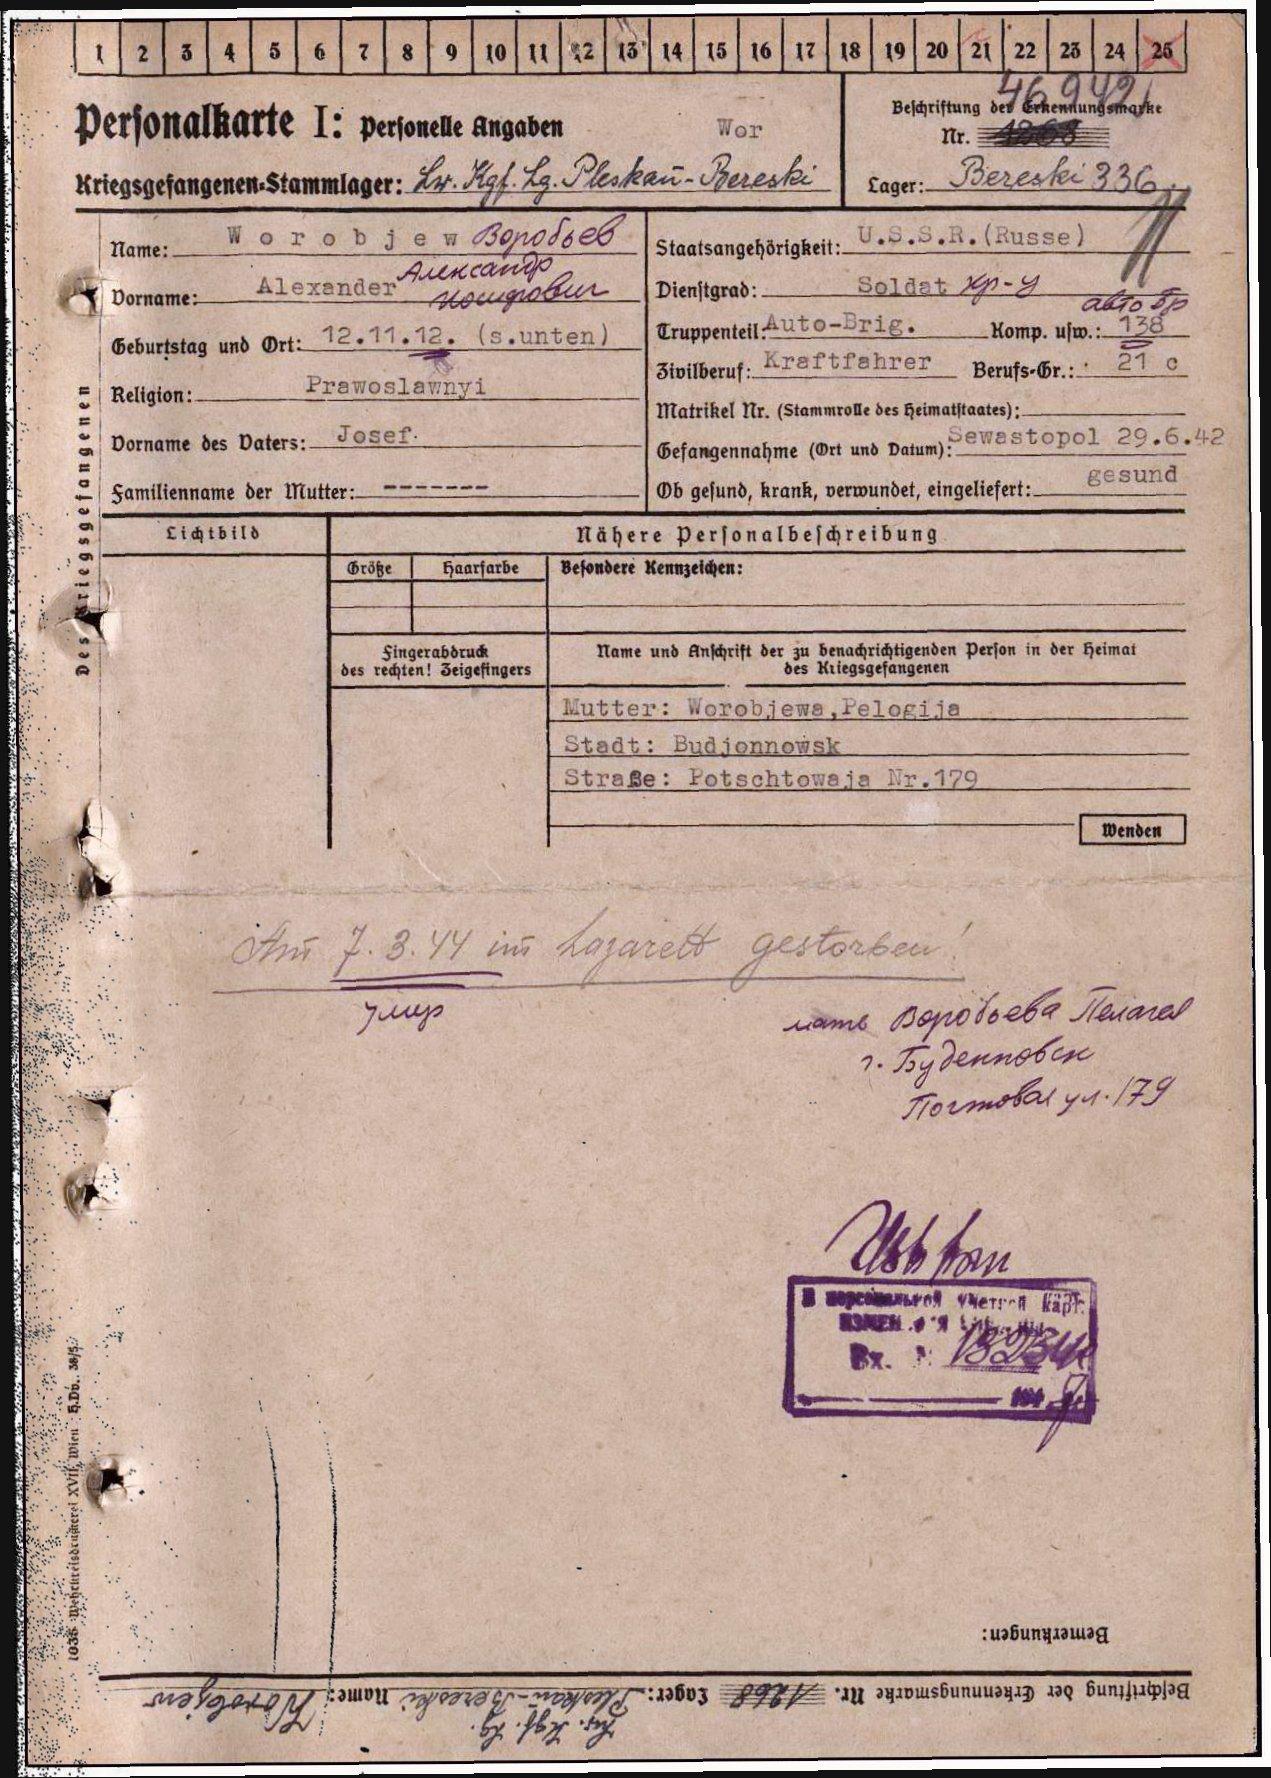 1 2 3 4 5 6 7 8 9 10 11 12 13 14 15 16 17 18 19 20 21 22 23 24 25
Personalkarte I: Personelle Angaben
Wor
Kriegsgefangenen-Stammlager: Lw. Kgf. Lg. Pleskau-Bereski
46942
Beschriftung der Erkennungsmarke
Nr. 1268
Lager: Bereski 336
Des Kriegsgefangenen
Name: Worobjew Воробьев
Vorname: Alexander Александр
Geburtstag und Ort: 12.11.12. (s.unten)
Religion: Prawoslawnyi
Vorname des Vaters: Josef.
Familienname der Mutter: -------
Staatsangehörigkeit: U.S.S.R.(Russe)
Dienstgrad: Soldat кр-ц
авто бр
Truppenteil: Auto-Brig. Komp. usw.: 138
Zivilberuf: Kraftfahrer Berufs-Gr.: 21 c
Matrikel Nr. (Stammrolle des Heimatstaates):
Gefangennahme (Ort und Datum): Sewastopol 29.6.42
Ob gesund, krank, verwundet, eingeliefert: gesund
Lichtbild
Nähere Personalbeschreibung
Größe Haarfarbe Besondere Kennzeichen:
Fingerabdruck
des rechten! Zeigefingers
Name und Anschrift der zu benachrichtigenden Person in der Heimat
des Kriegsgefangenen
Mutter: Worobjewa,Pelogija
Stadt: Budjonnowsk
Straße: Potschtowaja Nr.179
Wenden
Am 7.3.44 im Lazarett gestorben!
умер
мать Воробьева Пелагея
г. Буденновск
Почтовая ул. 179
В персональной учетной карт.
Вх. №
1038 Wehrkreisdruckerei XVII, Wien H.Dv. 38/5.
Bemerkungen:
Beschriftung der Erkennungsmarke Nr. 1268 Lager: Lw. Kgf. Lg. Pleskau-Bereski Name: Worobjew